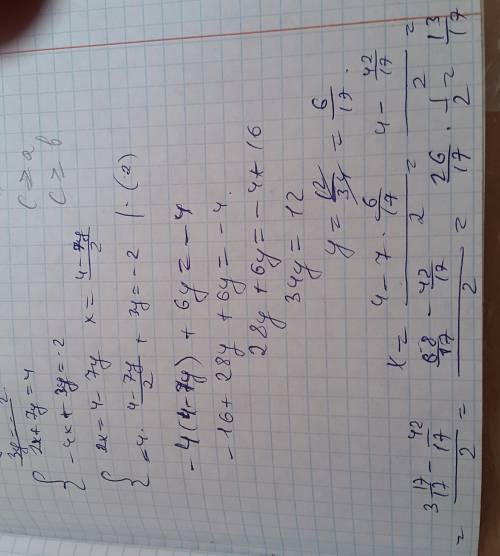 c ≥ a
c ≥ b
{ 2x + 7y = 4
-4x + 3y = -2
2x = 4 - 7y x = (4-7y)/2
{ -4 · (4-7y)/2 + 3y = -2 | · (2)
-4(4-7y) + 6y = -4
-16 + 28y + 6y = -4.
28y + 6y = -4 + 16
34y = 12
y = 12/34 = 6/17.
x = (4 - 7 · 6/17)/2 = (4 - 42/17)/2 =
= (3 17/17 - 42/17)/2 = (68/17 - 42/17)/2 = 26/17 · 1/2 = 13/17